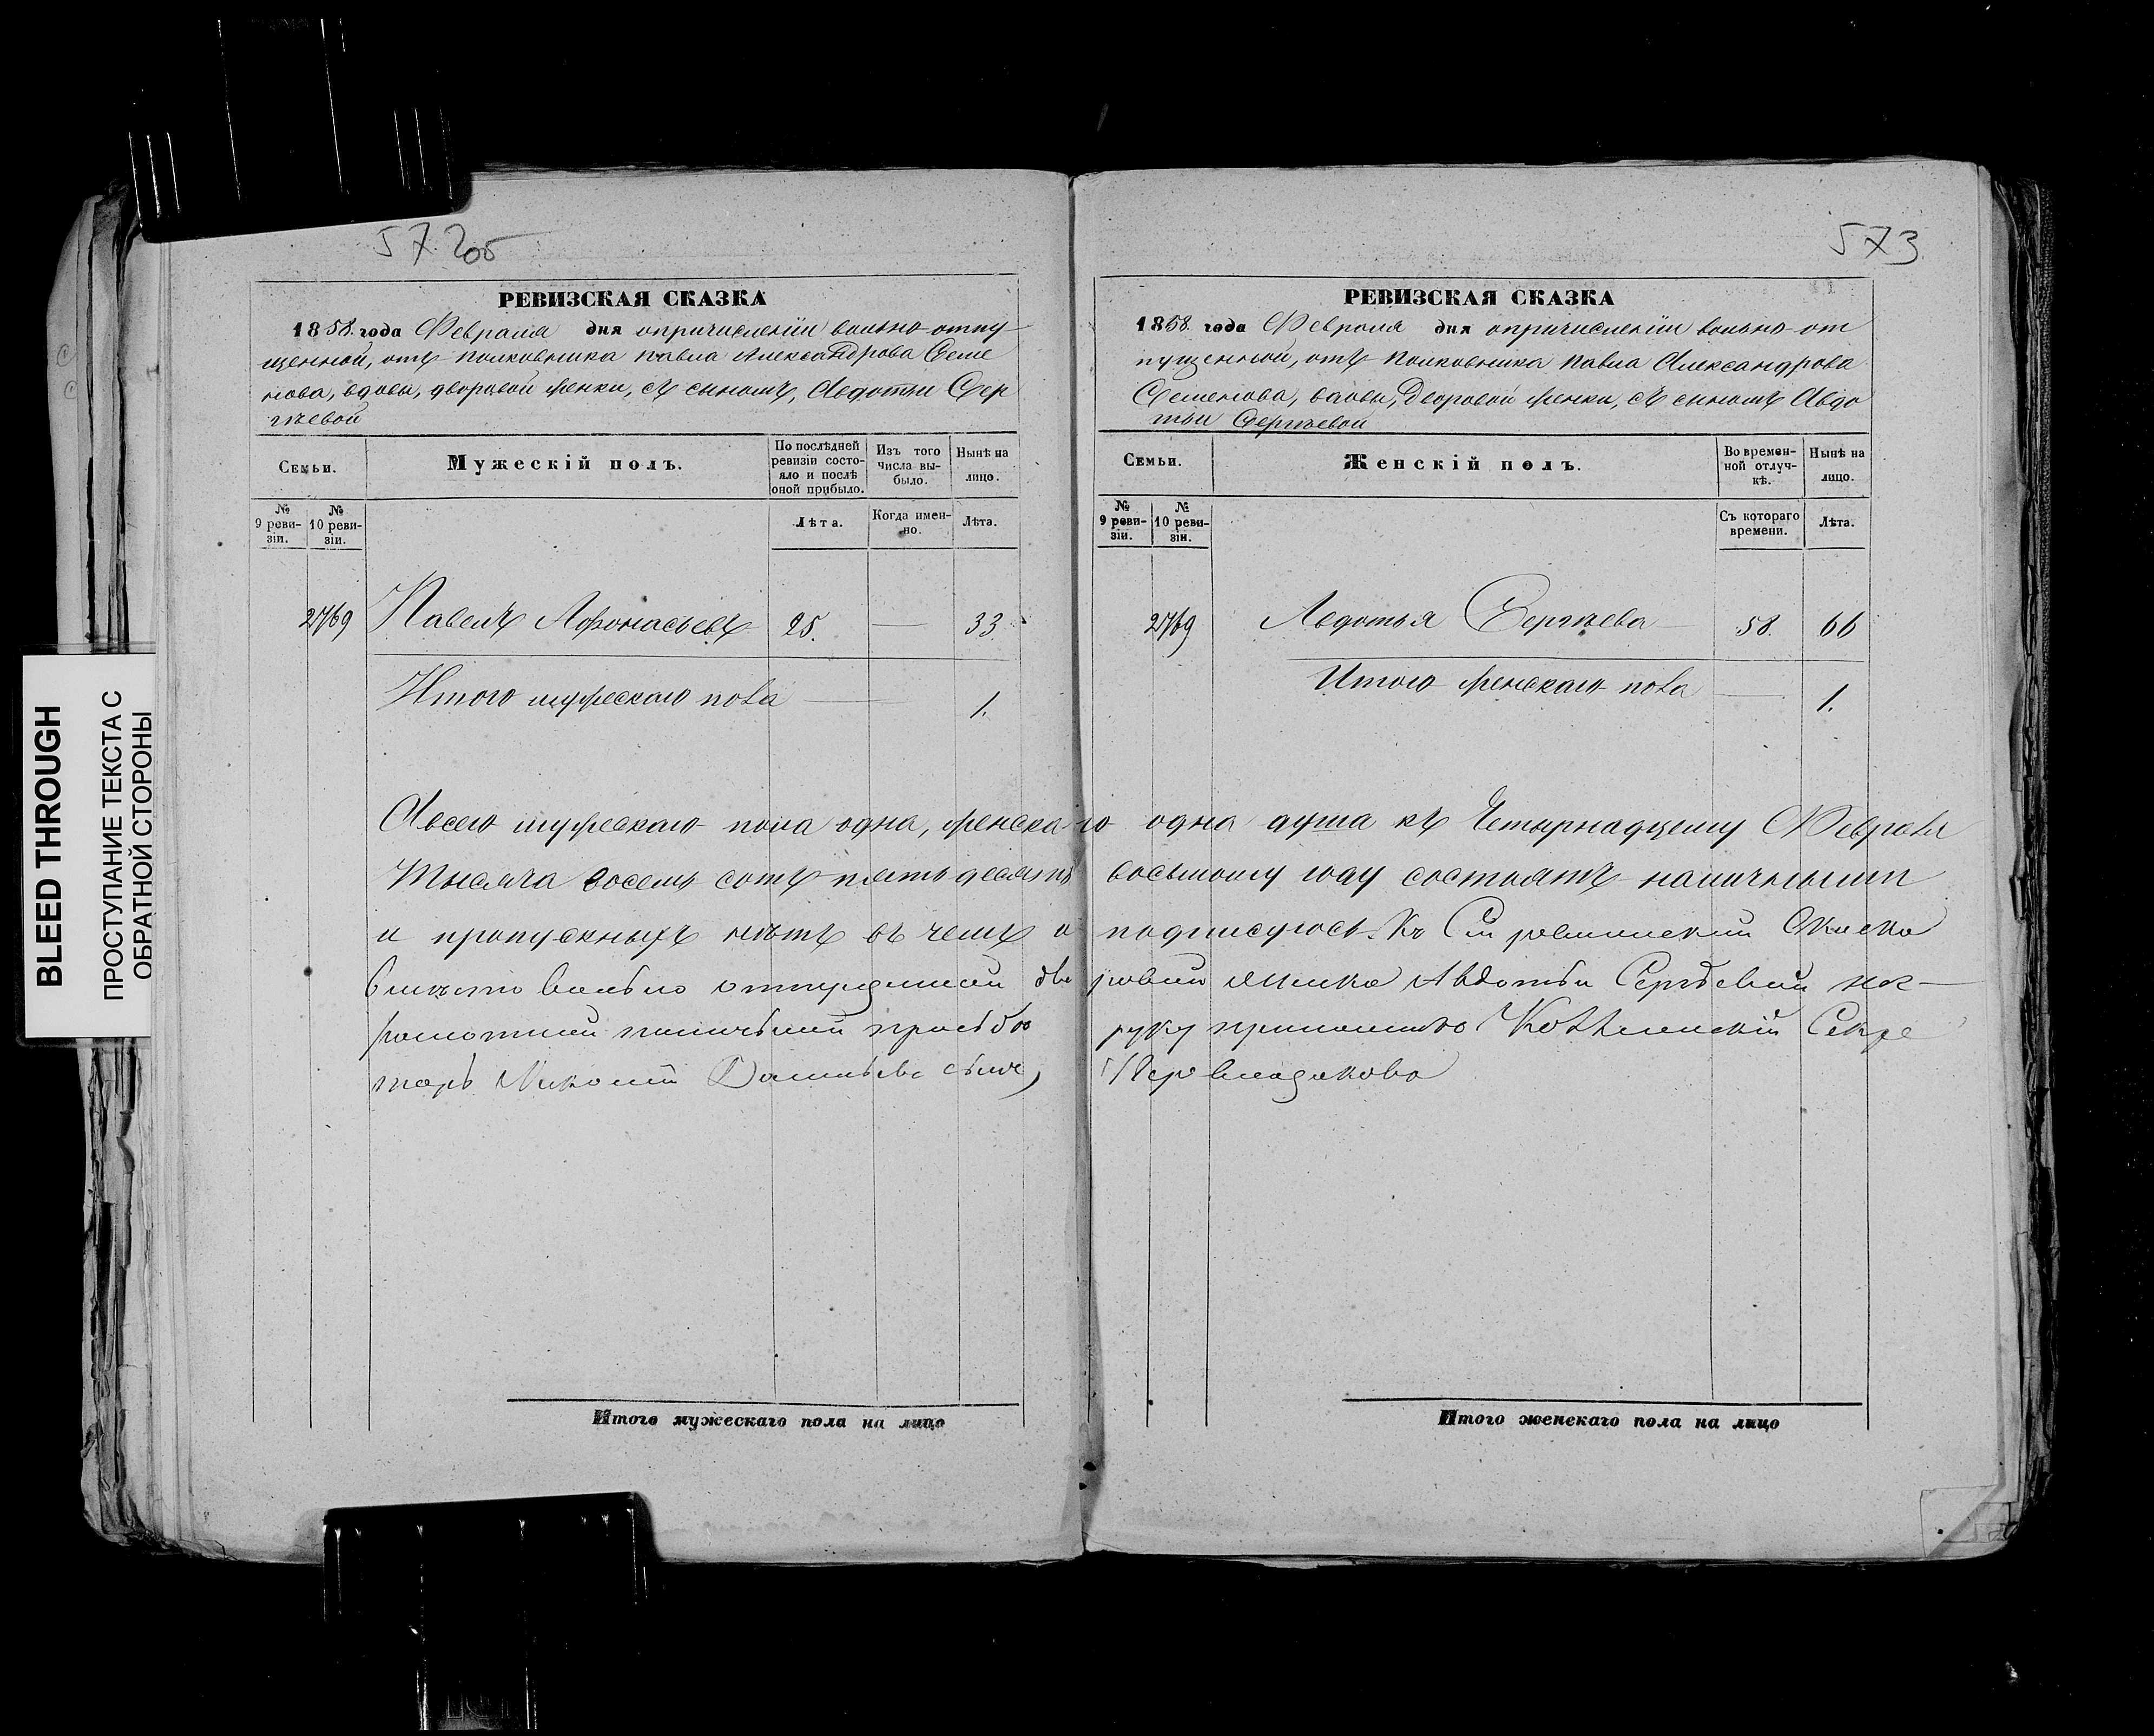 BLEED THROUGH
ПРОСТУПАНИЕ ТЕКСТА С
ОБРАТНОЙ СТОРОНЫ
57 2об
РЕВИЗСКАЯ СКАЗКА
1858. года Февраля дня опричисленіи вольно-отпу
щенной, отъ полковника Павла Александрова Семе
нова, вдовы, дворовой женки, съ сыномъ, Авдотьи Сер
гѣевой
Семьи.
Мужескій полъ.
По послѣдней ревизіи состояло и послѣ оной прибыло.
Изъ того числа выбыло.
Нынѣ на лицо.
№ 9 ревизіи.
№ 10 ревизіи.
Лѣта.
Когда именно.
Лѣта.
2769 Павелъ Афонасьевъ 25. — 33
Итого мужескаго пола — 1.
573
РЕВИЗСКАЯ СКАЗКА
1858. года Февраля дня опричисленіи вольно-от
пущенной, отъ полковника Павла Александрова
Семенова, вдовы, дворовой женки, съ сыномъ Авдо
тьи Сергѣевой
Семьи.
Женскій полъ.
Во временной отлучкѣ.
Нынѣ на лицо.
№ 9 ревизіи.
№ 10 ревизіи.
Съ котораго времени.
Лѣта.
2769 Авдотья Сергѣева 58. 66
Итого женскаго пола — 1.
Авсего мужескаго пола одна, женскаго одна душа къ Четырнадцему Февраля
Тысяча восемь сотъ пятьдесятъ восьмому году состоятъ наличными
и пропускныхъ нѣтъ въ чемъ и подписуюсь. Къ Сей ревизской Скаска
вместо вольно отпущенной дворовой женки Авдотьи Сергѣевой не-
грамотной личной прозьбо руку приложилъ Секре
тарь Данильевъ сынъ,
Итого мужескаго пола на лицо
Итого женскаго пола на лицо